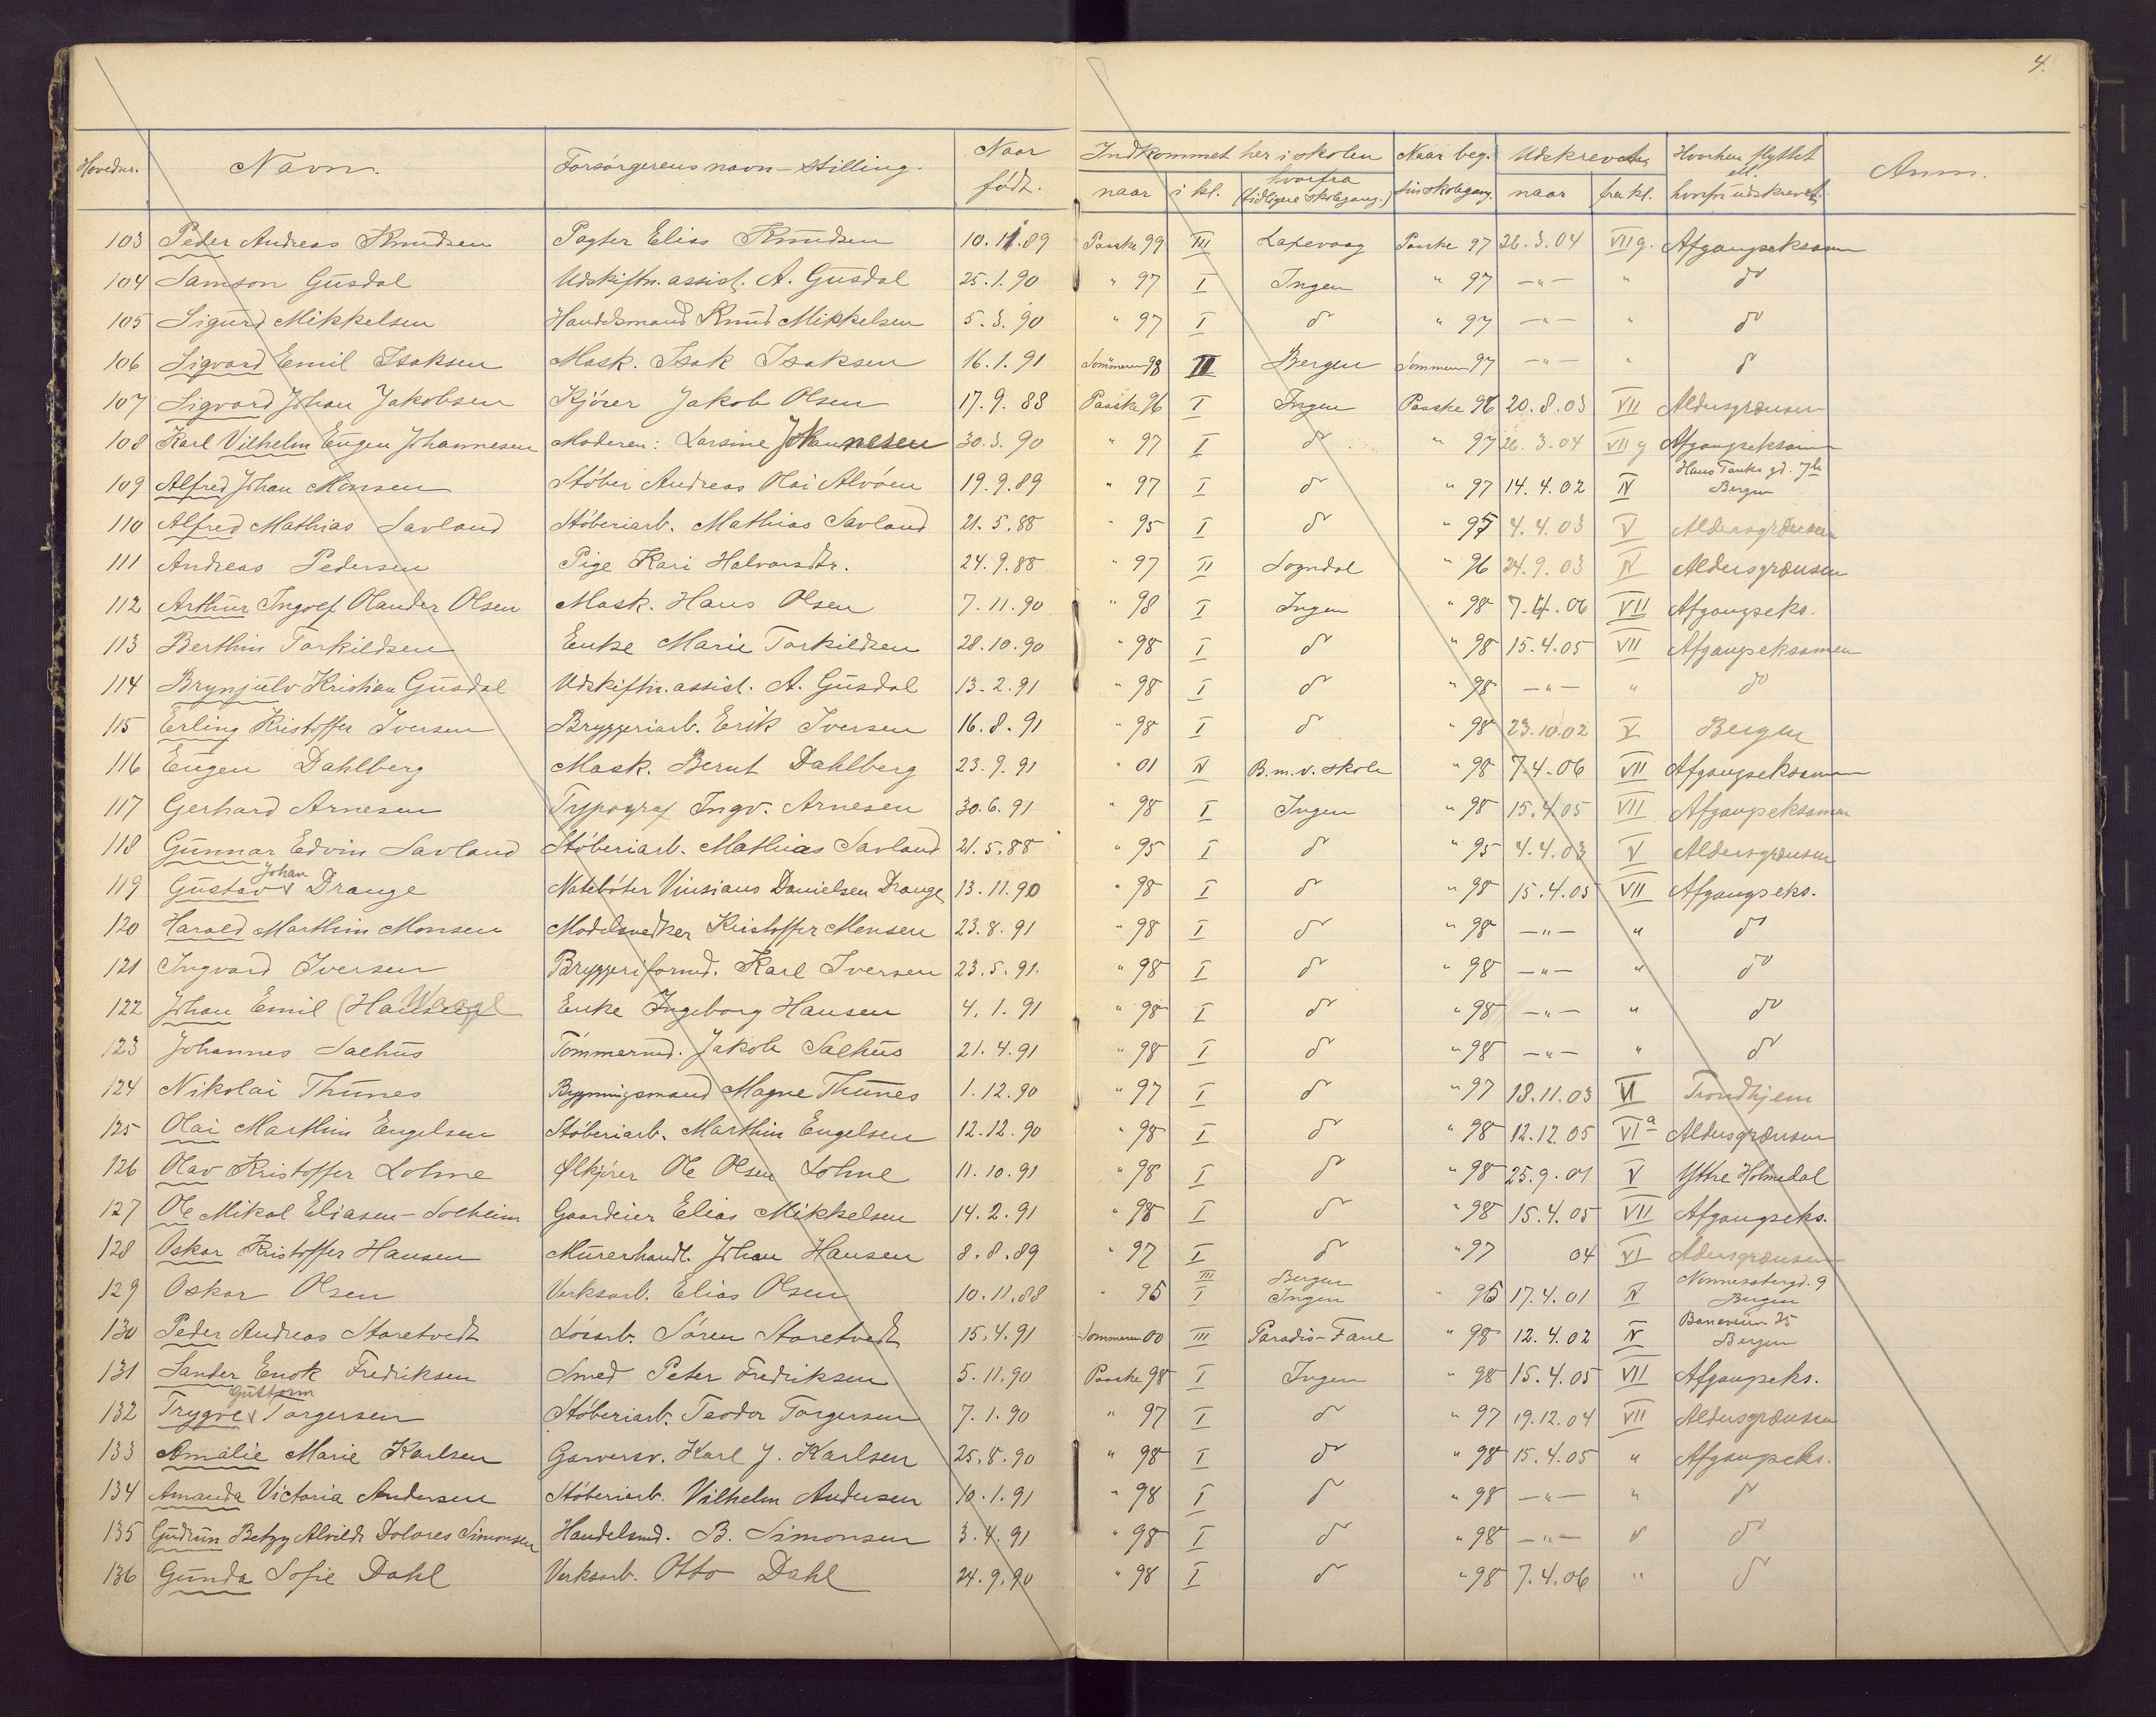 4.
Hovednr. Navn. Forsörgerens navn - stilling. Naar födt. Indkommet her i skolen naar i kl. hvorfra (tidligere skolegang.) Naar beg. sin skolegang. Udskrevet naar fra kl. Hvorhen flyttet ell. hvorfor udskrevet. Anm.
103 Peder Andreas Knudsen Pagter Elias Knudsen 10.11.89 Paaske 99 III Laxevaag Paaske 97 26.3.04 VII g. Afgangseksamen
104 Samson Gusdal Udskiftn. assist. A. Gusdal 25.1.90 " 97 I Ingen " 97 -"- " do
105 Sigurd Mikkelsen Handelsmand Knud Mikkelsen 5.3.90 " 97 I do " 97 -"- " do
106 Sigvard Emil Isaksen Mask. Isak Isaksen 16.1.91 Sommeren 98 II Bergen Sommeren 97 -"- " do
107 Sigvard Johan Jakobsen Kjörer Jakob Olsen 17.9.88 Paaske 96 I Ingen Paaske 96 20.8.03 VII Aldersgrænsen
108 Karl Vilhelm Eugen Johannesen Moderen: Larsine Johannesen 30.3.90 " 97 I do " 97 26.3.04 VII g Afgangseksamen
109 Alfred Johan Monsen Stöber Andreas Olai Alvöen 19.9.89 " 97 I do " 97 14.4.02 IV Hans Tanks gd. 7 Bergen
110 Alfred Mathias Savland Stöberiarb. Mathias Savland 21.5.88 " 95 I do " 95 4.4.03 V Aldersgrænsen
111 Andreas Pedersen Pige Kari Halvorsdtr. 24.9.88 " 97 II Sogndal " 96 24.9.03 IV Aldersgrænsen
112 Arthur Ingolf Olander Olsen Mask. Hans Olsen 7.11.90 " 98 I Ingen " 98 7.4.06 VII Afgangseks.
113 Berthin Torkildsen Enke Marie Torkildsen 28.10.90 " 98 I do " 98 15.4.05 VII Afgangseksamen
114 Brynjulv Kristian Gusdal Udskiftn. assist. A. Gusdal 13.2.91 " 98 I do " 98 -"- " do
115 Erling Kristoffer Iversen Bryggeriarb. Erik Iversen 16.8.91 " 98 I do " 98 23.10.02 V Bergen
116 Eugen Dahlberg Mask. Bernt Dahlberg 23.9.91 " 01 IV B.m.v. skole " 98 7.4.06 VII Afgangseksamen
117 Gerhard Arnesen Typograf Ingv. Arnesen 30.6.91 " 98 I Ingen " 98 15.4.05 VII Afgangseksamen
118 Gunnar Edvin Savland Stöberiarb. Mathias Savland 21.5.88 " 95 I do " 95 4.4.03 V Aldersgrænsen
119 Gustav Johan Drange Noteböter Vinsians Danielsen Drange 13.11.90 " 98 I do " 98 15.4.05 VII Afgangseks.
120 Harald Marthin Monsen Modelsnedker Kristoffer Monsen 23.8.91 " 98 I do " 98 -"- " do
121 Ingvard Iversen Bryggeriformd. Karl Iversen 23.5.91. " 98 I do " 98 -"- " do
122 Johan Emil (Hansen) Enke Ingeborg Hansen 4.1.91 " 98 I do " 98 -"- " do
123 Johannes Sælhus Tömmermd. Jakob Sælhus 21.4.91 " 98 I do " 98 -"- " do
124 Nikolai Thunes Bygningsmand Magne Thunes 1.12.90 " 97 I do " 97 18.11.03 VI Trondhjem
125 Olai Marthin Engelsen Stöberiarb. Marthin Engelsen 12.12.90 " 98 I do " 98 12.12.05 VI a Aldersgrænsen
126 Olav Kristoffer Lohne Ølkjörer Ole Olsen Lohne 11.10.91 " 98 I do " 98 25.9.01 V Yttre Holmedal
127 Ole Mikal Eliasen-Solheim Gaardeier Elias Mikkelsen 14.2.91 " 98 I do " 98 15.4.05 VII Afgangseks.
128 Oskar Kristoffer Hansen Murerhandl. Johan Hansen 8.8.89 " 97 I do " 97 04 VI Adersgrænsen
129 Oskar Olsen Verksarb. Elias Olsen 10.11.88 " 95 III I Bergen Ingen " 95 17.4.01 IV Nonnesætergd. 9 Bergen
130 Peder Andreas Storetvedt Lösarb. Sören Storetvedt 15.4.91 Sommeren 00 III Paradis-Fane " 98 12.4.02 IV Baneveien 25 Bergen
131 Sander Enok Fredriksen Smed Peter Fredriksen 5.11.90 Paaske 98 I Ingen " 98 15.4.05 VII Afgangseks.
132 Trygve Guttorm Torgersen Stöberiarb. Teodor Torgersen 7.1.90 " 97 I do " 97 19.12.04 VII Aldersgrænsen
133 Amalie Marie Karlsen Garversv. Karl J. Karlsen 25.8.90 " 98 I do " 98 15.4.05 " Afgangseks.
134 Amanda Victoria Andersen Stöberiarb. Vilhelm Andersen 10.1.91 " 98 I do " 98 -"- " do
135 Gudrun Betzy Alvilde Dolores Simonsen Handelsmd. B. Simonsen 3.4.91 " 98 I do " 98 -"- " do
136 Gunda Sofie Dahl Verksarb. Otto Dahl 24.9.90 " 98 I do " 98 7.4.06 " do